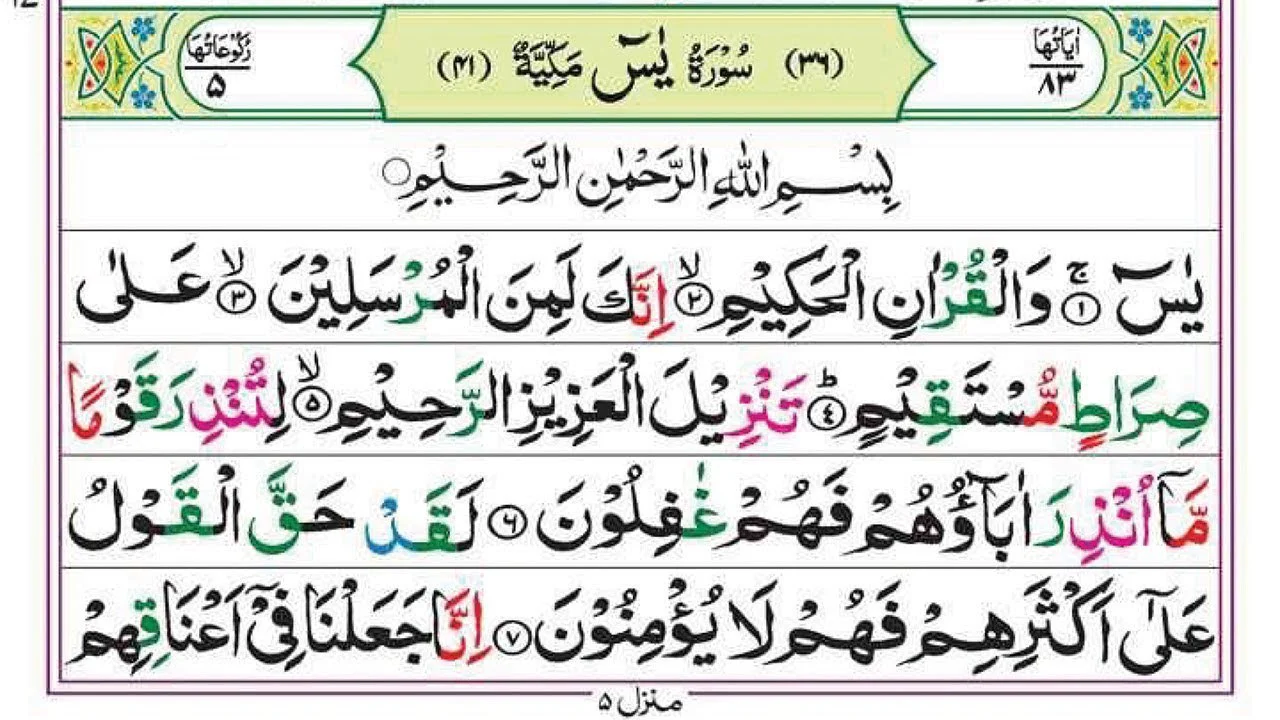 اٰيَاتُهَا ٨٣ (٣٦) سُوْرَةُ يٰسٓ مَكِّيَّةٌ (٤١) رُكُوْعَاتُهَا ٥
بِسْمِ اللّٰهِ الرَّحْمٰنِ الرَّحِيْمِ
يٰسٓ ۚ‏﴿١﴾ وَالْقُرْاٰنِ الْحَكِيْمِ ۙ‏﴿٢﴾ اِنَّكَ لَمِنَ الْمُرْسَلِيْنَ ۙ‏﴿٣﴾ عَلٰى
صِرَاطٍ مُّسْتَقِيْمٍ ؕ‏﴿٤﴾ تَنْزِيْلَ الْعَزِيْزِ الرَّحِيْمِ ۙ‏﴿٥﴾ لِتُنْذِرَ قَوْمًا
مَّاۤ اُنْذِرَ اٰبَآؤُهُمْ فَهُمْ غٰفِلُوْنَ ﴿٦﴾ لَقَدْ حَقَّ الْقَوْلُ
عَلٰٓى اَكْثَرِهِمْ فَهُمْ لَا يُؤْمِنُوْنَ ﴿٧﴾ اِنَّا جَعَلْنَا فِىْۤ اَعْنَاقِهِمْ
منزل ٥